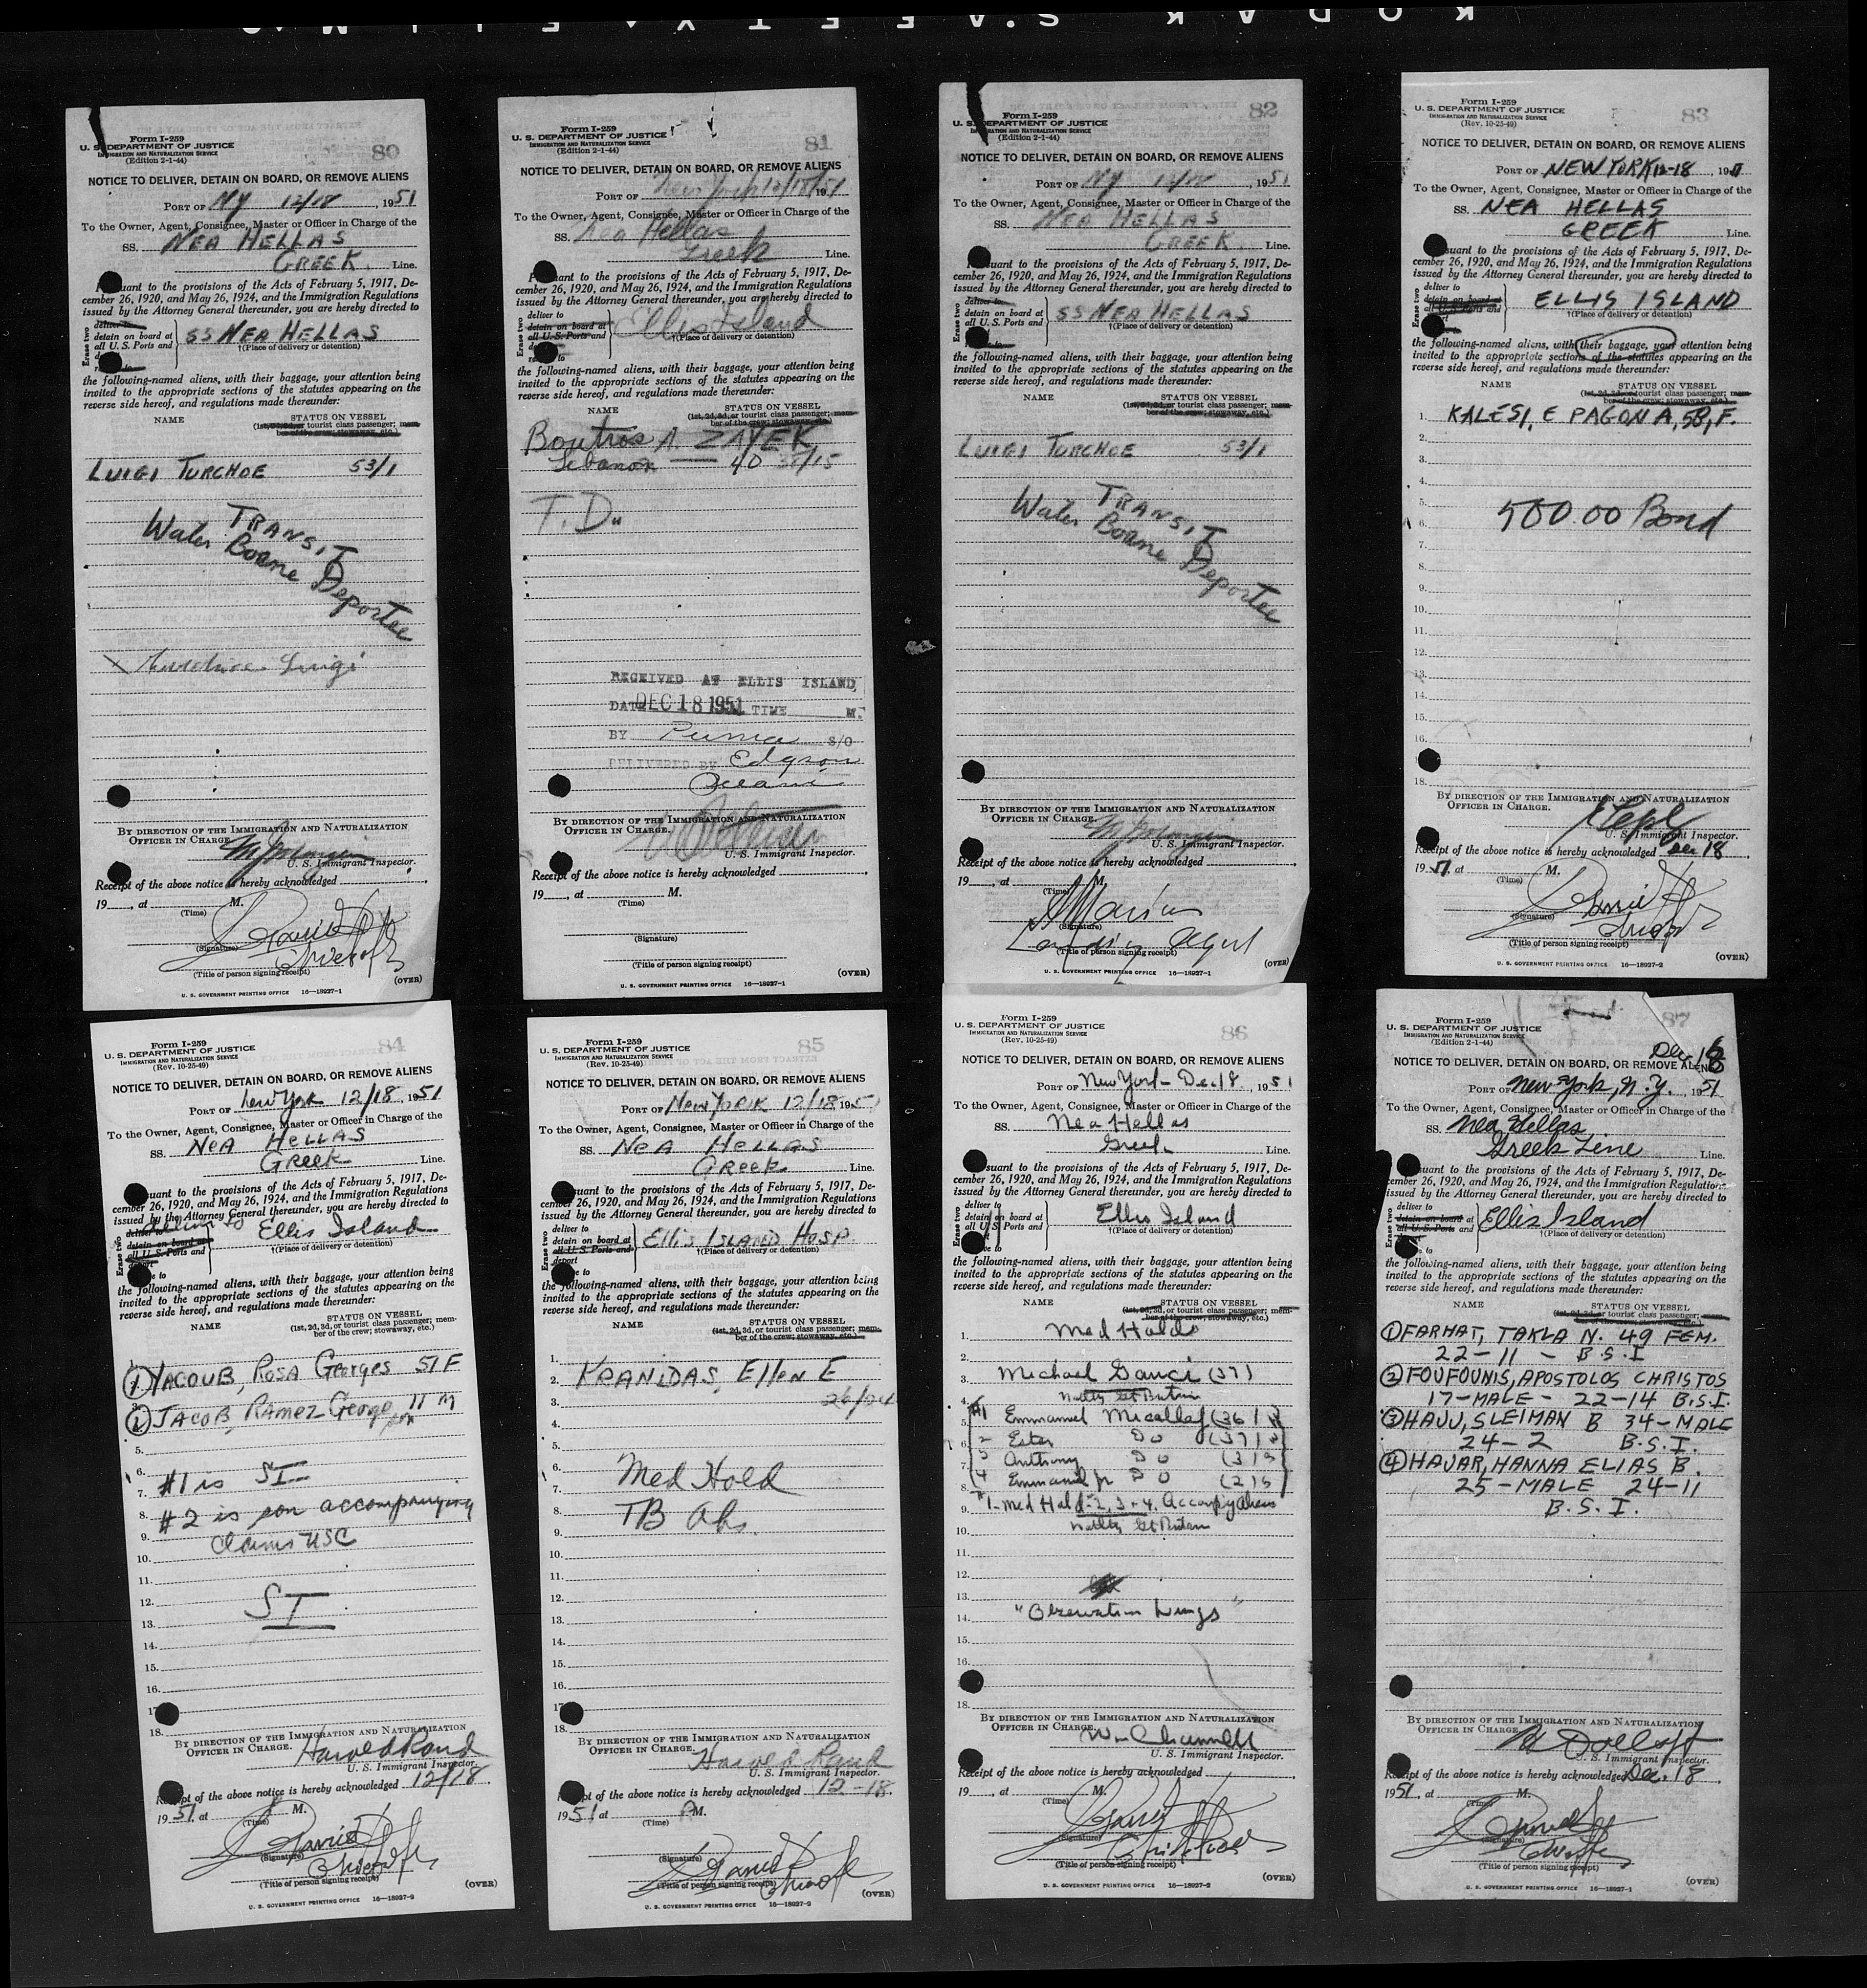 KODAK S.AFETY FILM
80
Form I-259
U. S. DEPARTMENT OF JUSTICE
IMMIGRATION AND NATURALIZATION SERVICE
(Edition 2-1-44)
NOTICE TO DELIVER, DETAIN ON BOARD, OR REMOVE ALIENS
PORT OF NY 12/18, 1951
To the Owner, Agent, Consignee, Master or Officer in Charge of the
SS. NEA HELLAS
GREEK Line.
uant to the provisions of the Acts of February 5, 1917, De-
cember 26, 1920, and May 26, 1924, and the Immigration Regulations
issued by the Attorney General thereunder, you are hereby directed to
Erase two
deliver to
detain on board at
all U. S. Ports and
SS NEA HELLAS
†(Place of delivery or detention)
the following-named aliens, with their baggage, your attention being
invited to the appropriate sections of the statutes appearing on the
reverse side hereof, and regulations made thereunder:
NAME
STATUS ON VESSEL
(1st, 2d, 3d, or tourist class passenger; mem-
ber of the crew; stowaway, etc.)
LUIGI TURCHOE 53/1
TRANSIT
Water Borne Deportee
X Luigi
BY DIRECTION OF THE IMMIGRATION AND NATURALIZATION
OFFICER IN CHARGE.
U. S. Immigrant Inspector.
Receipt of the above notice is hereby acknowledged
19, at M.
(Time)
(Signature)
(Title of person signing receipt)
(OVER)
U. S. GOVERNMENT PRINTING OFFICE 16—18927-1
81
Form I-259
U. S. DEPARTMENT OF JUSTICE
IMMIGRATION AND NATURALIZATION SERVICE
(Edition 2-1-44)
NOTICE TO DELIVER, DETAIN ON BOARD, OR REMOVE ALIENS
PORT OF New York 12/18/51 19
To the Owner, Agent, Consignee, Master or Officer in Charge of the
SS. Nea Hellas
Greek Line.
ant to the provisions of the Acts of February 5, 1917, De-
cember 26, 1920, and May 26, 1924, and the Immigration Regulations
issued by the Attorney General thereunder, you are hereby directed to
Erase two
deliver to
detain on board at
all U. S. Ports and
Ellis Island
†(Place of delivery or detention)
the following-named aliens, with their baggage, your attention being
invited to the appropriate sections of the statutes appearing on the
reverse side hereof, and regulations made thereunder:
NAME
STATUS ON VESSEL
(1st, 2d, 3d, or tourist class passenger; mem-
ber of the crew; stowaway, etc.)
Boutros A. ZAYEK
Lebanon — 40 38/15
T. D.
RECEIVED AT ELLIS ISLAND
DATE DEC 18 1951 TIME M.
BY S/O
DELIVERED BY
BY DIRECTION OF THE IMMIGRATION AND NATURALIZATION
OFFICER IN CHARGE.
U. S. Immigrant Inspector.
Receipt of the above notice is hereby acknowledged
19, at M.
(Time)
(Signature)
(Title of person signing receipt)
(OVER)
U. S. GOVERNMENT PRINTING OFFICE 16—18927-1
82
Form I-259
U. S. DEPARTMENT OF JUSTICE
IMMIGRATION AND NATURALIZATION SERVICE
(Edition 2-1-44)
NOTICE TO DELIVER, DETAIN ON BOARD, OR REMOVE ALIENS
PORT OF NY 12/18, 1951
To the Owner, Agent, Consignee, Master or Officer in Charge of the
SS. NEA HELLAS
GREEK Line.
suant to the provisions of the Acts of February 5, 1917, De-
cember 26, 1920, and May 26, 1924, and the Immigration Regulations
issued by the Attorney General thereunder, you are hereby directed to
Erase two
deliver to
detain on board at
all U. S. Ports and
SS NEA HELLAS
†(Place of delivery or detention)
the following-named aliens, with their baggage, your attention being
invited to the appropriate sections of the statutes appearing on the
reverse side hereof, and regulations made thereunder:
NAME
STATUS ON VESSEL
(1st, 2d, 3d, or tourist class passenger; mem-
ber of the crew; stowaway, etc.)
LUIGI TURCHOE 53/1
TRANSIT
Water Borne Deportee
BY DIRECTION OF THE IMMIGRATION AND NATURALIZATION
OFFICER IN CHARGE.
U. S. Immigrant Inspector.
Receipt of the above notice is hereby acknowledged
19, at M.
(Time)
(Signature)
Landing Agent
(Title of person signing receipt)
(OVER)
U. S. GOVERNMENT PRINTING OFFICE 16—18927-1
83
Form I-259
U. S. DEPARTMENT OF JUSTICE
IMMIGRATION AND NATURALIZATION SERVICE
(Rev. 10-25-49)
NOTICE TO DELIVER, DETAIN ON BOARD, OR REMOVE ALIENS
PORT OF NEW YORK 12-18, 1951
To the Owner, Agent, Consignee, Master or Officer in Charge of the
SS. NEA HELLAS
GREEK Line.
suant to the provisions of the Acts of February 5, 1917, De-
cember 26, 1920, and May 26, 1924, and the Immigration Regulations
issued by the Attorney General thereunder, you are hereby directed to
Erase two
deliver to
detain on board at
all U. S. Ports and
ELLIS ISLAND
†(Place of delivery or detention)
the following-named aliens, with their baggage, your attention being
invited to the appropriate sections of the statutes appearing on the
reverse side hereof, and regulations made thereunder:
NAME
STATUS ON VESSEL
(1st, 2d, 3d, or tourist class passenger; mem-
ber of the crew; stowaway, etc.)
1. KALESI, E PAGONA, 58, F.
2.
3.
4.
5.
6. 500.00 Bond
7.
8.
9.
10.
11.
12.
13.
14.
15.
16.
18.
BY DIRECTION OF THE IMMIGRATION AND NATURALIZATION
OFFICER IN CHARGE.
U. S. Immigrant Inspector.
Receipt of the above notice is hereby acknowledged Dec 18
1951, at M.
(Time)
(Signature)
(Title of person signing receipt)
(OVER)
U. S. GOVERNMENT PRINTING OFFICE 16—18927-2
84
Form I-259
U. S. DEPARTMENT OF JUSTICE
IMMIGRATION AND NATURALIZATION SERVICE
(Rev. 10-25-49)
NOTICE TO DELIVER, DETAIN ON BOARD, OR REMOVE ALIENS
PORT OF New York 12/18 1951
To the Owner, Agent, Consignee, Master or Officer in Charge of the
SS. NeA HeLLAS
Greek Line.
suant to the provisions of the Acts of February 5, 1917, De-
cember 26, 1920, and May 26, 1924, and the Immigration Regulations
issued by the Attorney General thereunder, you are hereby directed to
Erase two
deliver to
deliver to
detain on board at
all U. S. Ports and
deport
Ellis Island
†(Place of delivery or detention)
the following-named aliens, with their baggage, your attention being
invited to the appropriate sections of the statutes appearing on the
reverse side hereof, and regulations made thereunder:
NAME
STATUS ON VESSEL
(1st, 2d, 3d, or tourist class passenger; mem-
ber of the crew; stowaway, etc.)
① YACOUB, ROSA Georges 51 F
② JACOB, RAMEZ George 11 M
son
5.
6.
7. #1 is SI
8. #2 is son accompanying
9. claims USC
10.
11.
12. SI
13.
14.
15.
16.
17
18.
BY DIRECTION OF THE IMMIGRATION AND NATURALIZATION
OFFICER IN CHARGE. Harold Rand
U. S. Immigrant Inspector.
Receipt of the above notice is hereby acknowledged 12/18
1951 at M.
(Time)
(Signature)
(Title of person signing receipt)
(OVER)
U. S. GOVERNMENT PRINTING OFFICE 16—18927-2
85
Form I-259
U. S. DEPARTMENT OF JUSTICE
IMMIGRATION AND NATURALIZATION SERVICE
(Rev. 10-25-49)
NOTICE TO DELIVER, DETAIN ON BOARD, OR REMOVE ALIENS
PORT OF New York 12/18 1951
To the Owner, Agent, Consignee, Master or Officer in Charge of the
SS. NeA HeLLAS
Greek Line.
suant to the provisions of the Acts of February 5, 1917, De-
cember 26, 1920, and May 26, 1924, and the Immigration Regulations
issued by the Attorney General thereunder, you are hereby directed to
Erase two
deliver to
detain on board at
all U. S. Ports and
deport
Ellis ISLAND HOSP
†(Place of delivery or detention)
the following-named aliens, with their baggage, your attention being
invited to the appropriate sections of the statutes appearing on the
reverse side hereof, and regulations made thereunder:
NAME
STATUS ON VESSEL
(1st, 2d, 3d, or tourist class passenger; mem-
ber of the crew; stowaway, etc.)
1.
2. KRANIDAS, Ellen E
3. 26/24
4.
5.
6.
7. Med Hold
8. TB Obs.
9.
10.
11.
12.
13.
14.
15.
16.
17
18.
BY DIRECTION OF THE IMMIGRATION AND NATURALIZATION
OFFICER IN CHARGE. Harold Rand
U. S. Immigrant Inspector.
pt of the above notice is hereby acknowledged 12-18
1951 at P M.
(Time)
(Signature)
(Title of person signing receipt)
(OVER)
U. S. GOVERNMENT PRINTING OFFICE 16—18927-2
86
Form I-259
U. S. DEPARTMENT OF JUSTICE
IMMIGRATION AND NATURALIZATION SERVICE
(Rev. 10-25-49)
NOTICE TO DELIVER, DETAIN ON BOARD, OR REMOVE ALIENS
PORT OF New York - Dec 18, 1951
To the Owner, Agent, Consignee, Master or Officer in Charge of the
SS. Nea Hellas
Greek Line.
suant to the provisions of the Acts of February 5, 1917, De-
cember 26, 1920, and May 26, 1924, and the Immigration Regulations
issued by the Attorney General thereunder, you are hereby directed to
Erase two
deliver to
detain on board at
all U S Ports and
Ellis Island
†(Place of delivery or detention)
the following-named aliens, with their baggage, your attention being
invited to the appropriate sections of the statutes appearing on the
reverse side hereof, and regulations made thereunder:
NAME
STATUS ON VESSEL
(1st, 2d, 3d, or tourist class passenger; mem-
ber of the crew; stowaway, etc.)
1. Med Holds
2.
3. Michael Gauci (37)
4. Natlty Gt Britain
5. #1 Emmanuel Micallef (36)
6. 2 Ester Do (37)
7. 3 Anthony Do (3)
8. 4 Emmanuel jr Do (2)
9. #1 - Med Hold #2, 3 + 4. Accompy Aliens
10. Natlty Gt Britain
11.
12.
13.
14. "Observation Lungs"
15.
16.
18.
BY DIRECTION OF THE IMMIGRATION AND NATURALIZATION
OFFICER IN CHARGE.
U. S. Immigrant Inspector.
Receipt of the above notice is hereby acknowledged
19, at M.
(Time)
(Signature)
(Title of person signing receipt)
(OVER)
U. S. GOVERNMENT PRINTING OFFICE 16—18927-2
87
Form I-259
U. S. DEPARTMENT OF JUSTICE
IMMIGRATION AND NATURALIZATION SERVICE
(Edition 2-1-44)
Dec. 18
NOTICE TO DELIVER, DETAIN ON BOARD, OR REMOVE ALIENS
PORT OF New York, N.Y. 1951
To the Owner, Agent, Consignee, Master or Officer in Charge of the
SS. Nea Hellas
Greek Line Line.
suant to the provisions of the Acts of February 5, 1917, De-
cember 26, 1920, and May 26, 1924, and the Immigration Regulations
issued by the Attorney General thereunder, you are hereby directed to
Erase two
deliver to
detain on board at
all U. S. Ports and
Ellis Island
†(Place of delivery or detention)
the following-named aliens, with their baggage, your attention being
invited to the appropriate sections of the statutes appearing on the
reverse side hereof, and regulations made thereunder:
NAME
STATUS ON VESSEL
(1st, 2d, 3d, or tourist class passenger; mem-
ber of the crew; stowaway, etc.)
① FARHAT, TAKLA N. 49 FEM.
22-11 - B.S.I
② FOUFOUNIS, APOSTOLOS CHRISTOS
17-MALE - 22-14 B.S.I.
③ HAJJ, SLEIMAN B 34-MALE
24-2 B.S.I.
④ HAJJAR, HANNA ELIAS B.
25-MALE 24-11
B.S.I.
BY DIRECTION OF THE IMMIGRATION AND NATURALIZATION
OFFICER IN CHARGE.
U. S. Immigrant Inspector.
Receipt of the above notice is hereby acknowledged Dec. 18
1951, at M.
(Time)
(Signature)
(Title of person signing receipt)
(OVER)
U. S. GOVERNMENT PRINTING OFFICE 16—18927-1